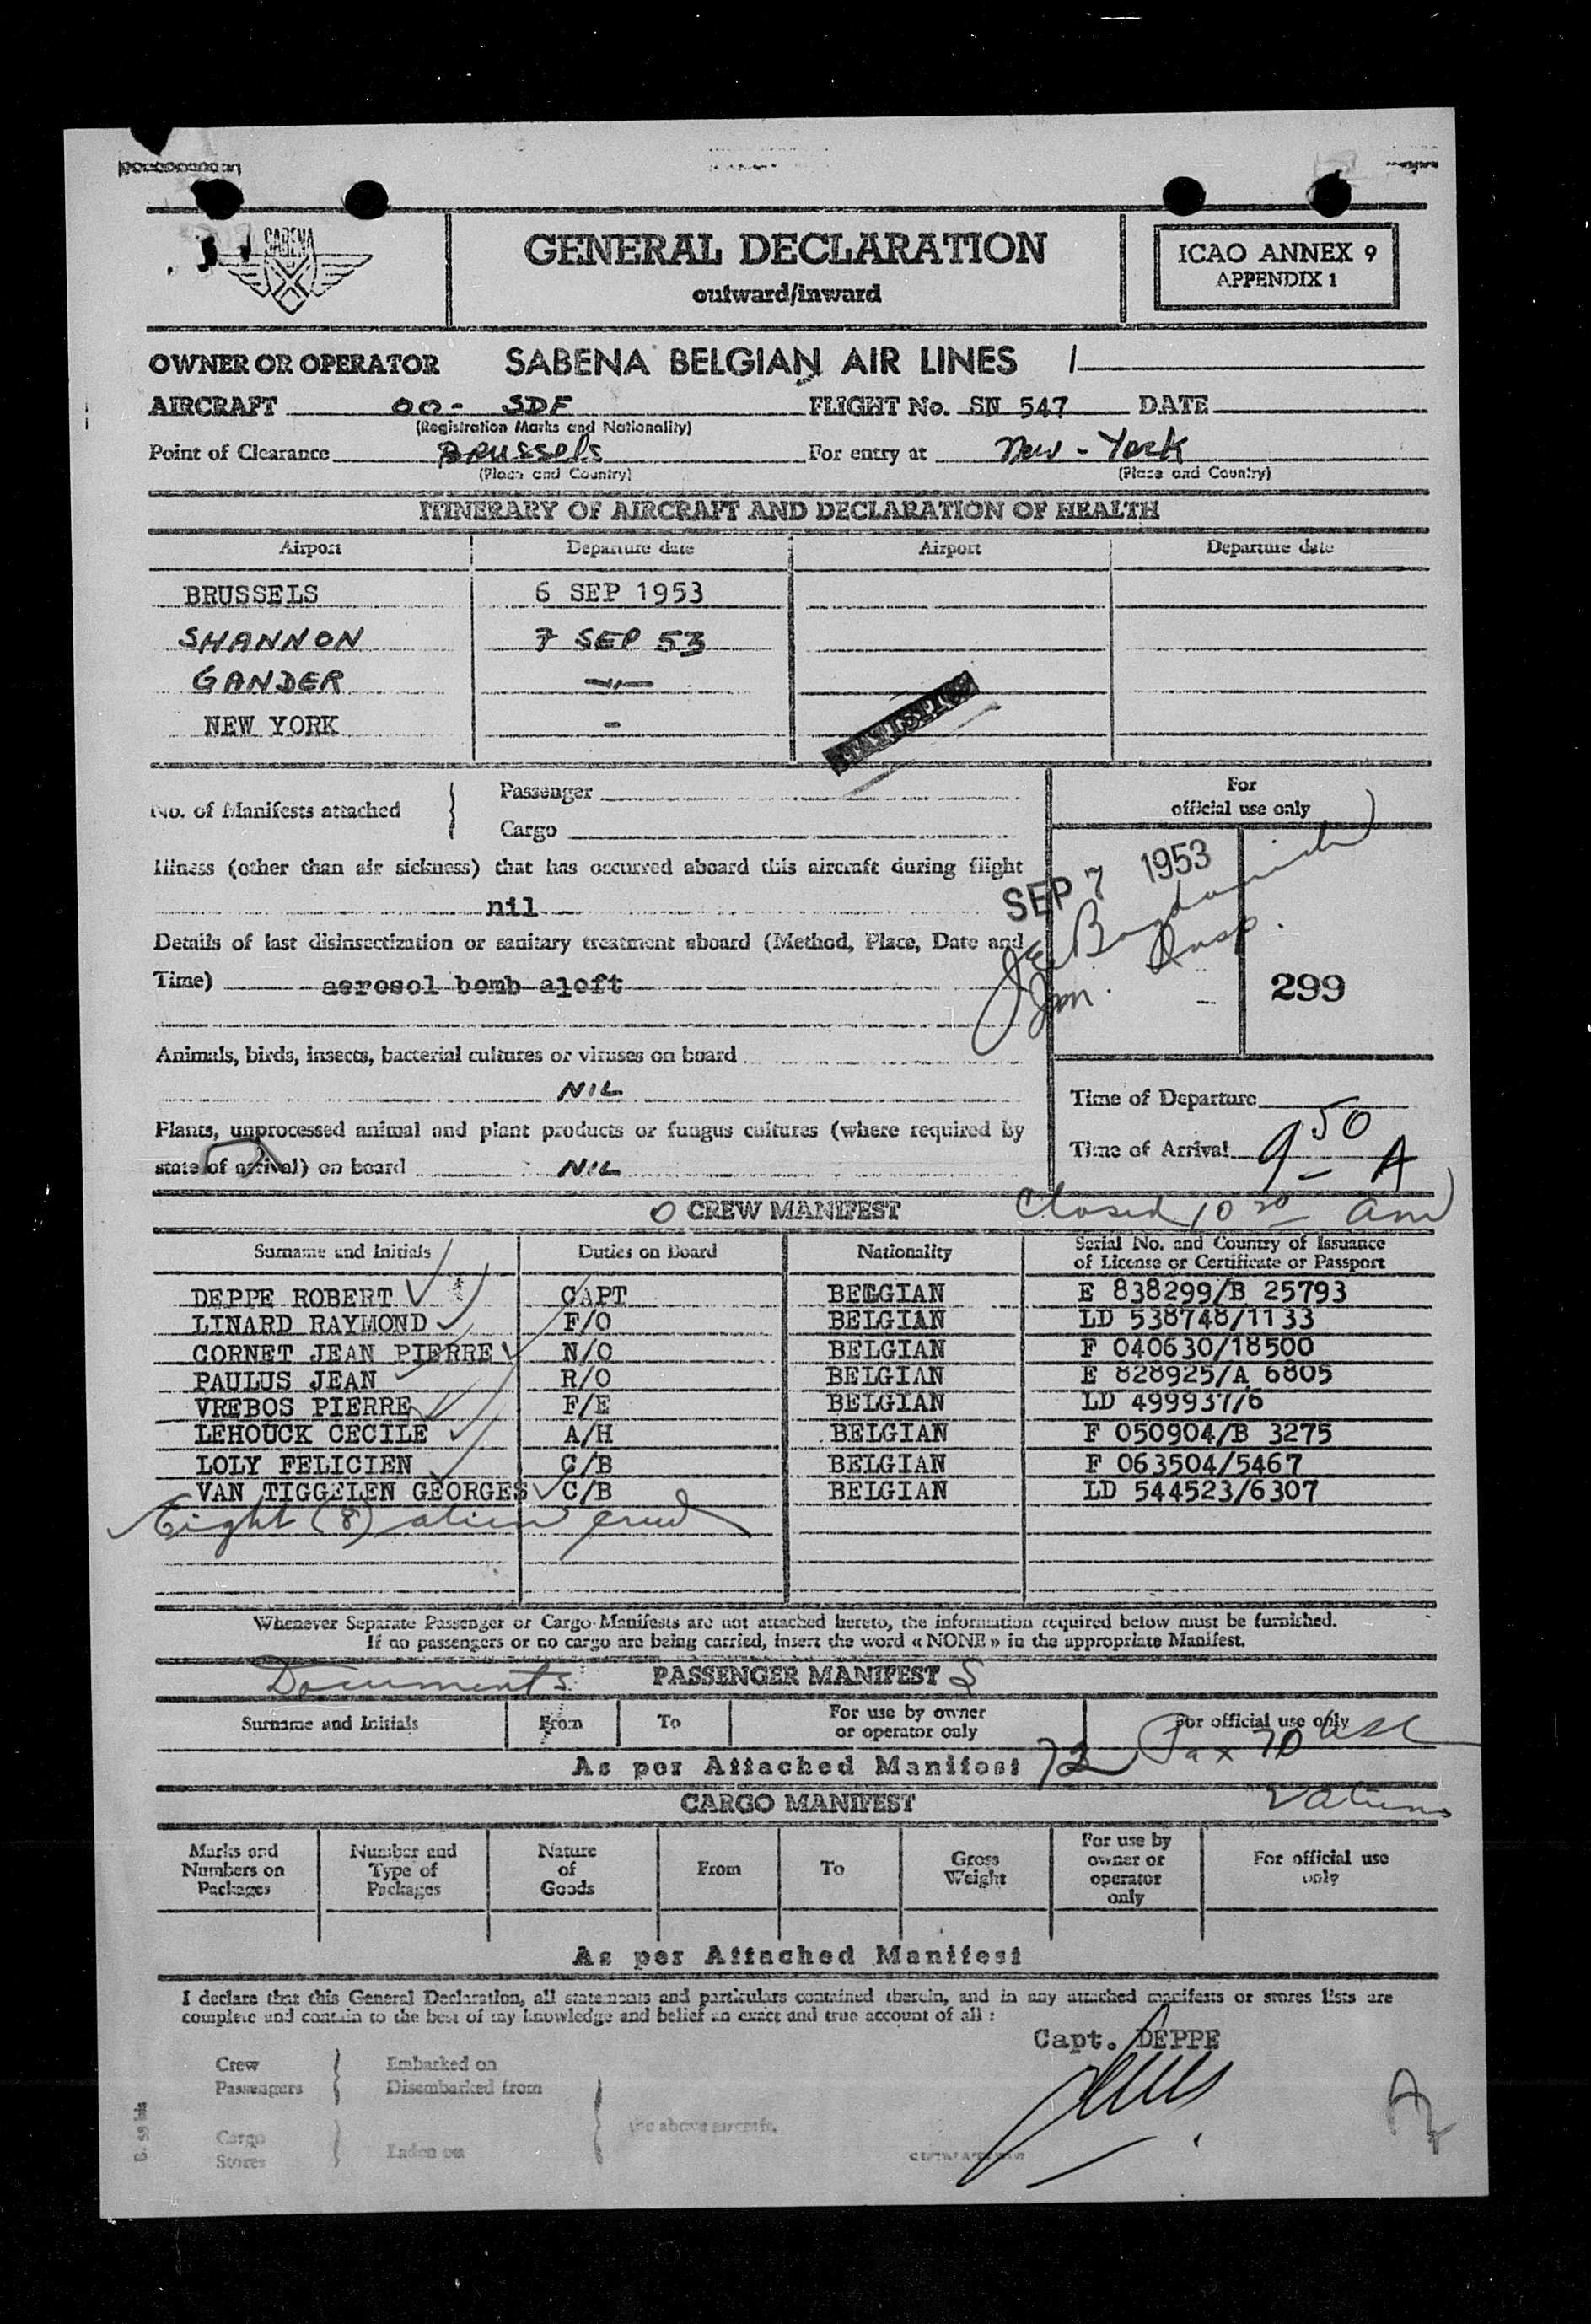 SABENA
GENERAL DECLARATION
outward/inward
ICAO ANNEX 9
APPENDIX 1
OWNER OR OPERATOR SABENA BELGIAN AIR LINES
AIRCRAFT OO- SDF FLIGHT No. SN 547 DATE
(Registration Marks and Nationality)
Point of Clearance Brussels For entry at New-York
(Place and Country) (Place and Country)
ITINERARY OF AIRCRAFT AND DECLARATION OF HEALTH
Airport Departure date Airport Departure date
BRUSSELS 6 SEP 1953
SHANNON 7 SEP 53
GANDER -"-
NEW YORK -
No. of Manifests attached { Passenger
Cargo
For
official use only
Illness (other than air sickness) that has occurred aboard this aircraft during flight
nil
SEP 7 1953
Details of last disinsectization or sanitary treatment aboard (Method, Place, Date and
Time) aerosol bomb aloft
Imm. Insp.
299
Animals, birds, insects, bacterial cultures or viruses on board
NIL
Plants, unprocessed animal and plant products or fungus cultures (where required by
state of arrival) on board NIL
Time of Departure
Time of Arrival 9 50 A
CREW MANIFEST Closed 10 20 am
Surname and Initials Duties on Board Nationality Serial No. and Country of Issuance
of License or Certificate or Passport
DEPPE ROBERT CAPT BELGIAN E 838299/B 25793
LINARD RAYMOND F/O BELGIAN LD 538748/1133
CORNET JEAN PIERRE N/O BELGIAN F 040630/18500
PAULUS JEAN R/O BELGIAN E 828925/A 6805
VREBOS PIERRE F/E BELGIAN LD 499937/6
LEHOUCK CECILE A/H BELGIAN F 050904/B 3275
LOLY FELICIEN C/B BELGIAN F 063504/5467
VAN TIGGELEN GEORGES C/B BELGIAN LD 544523/6307
Eight (8) alien crew
Whenever Separate Passenger or Cargo Manifests are not attached hereto, the information required below must be furnished.
If no passengers or no cargo are being carried, insert the word « NONE » in the appropriate Manifest.
Documents PASSENGER MANIFEST
Surname and Initials From To For use by owner
or operator only For official use only
As per Attached Manifest 72 Pax 70 USC
2 aliens
CARGO MANIFEST
Marks and
Numbers on
Packages
Number and
Type of
Packages
Nature
of
Goods
From To Gross
Weight
For use by
owner or
operator
only
For official use
only
As per Attached Manifest
I declare that this General Declaration, all statements and particulars contained therein, and in any attached manifests or stores lists are
complete and contain to the best of my knowledge and belief an exact and true account of all :
Capt. DEPPE
Crew
Passengers
Embarked on
Disembarked from
Cargo
Stores
Laden on
the above aircraft.